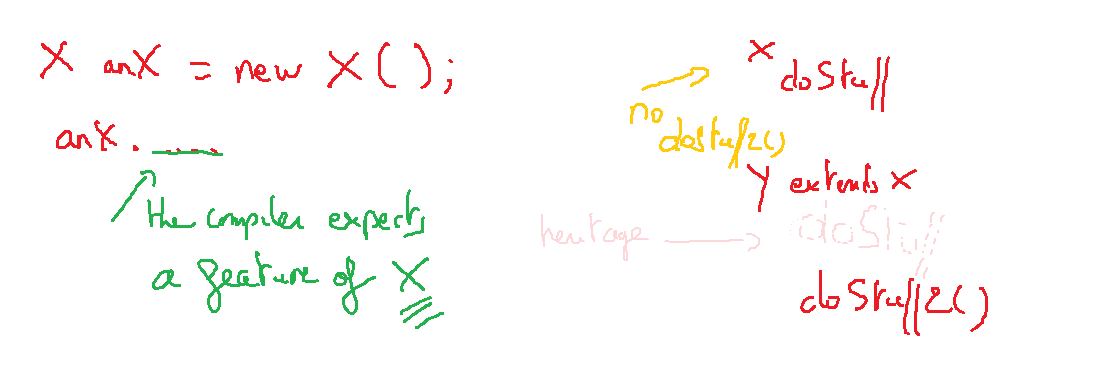 X anX = new X();
anX. ___
the compiler expects
a feature of X
X
doStuff
no
doStuff2()
Y extends X
heritage
doStuff
doStuff2()